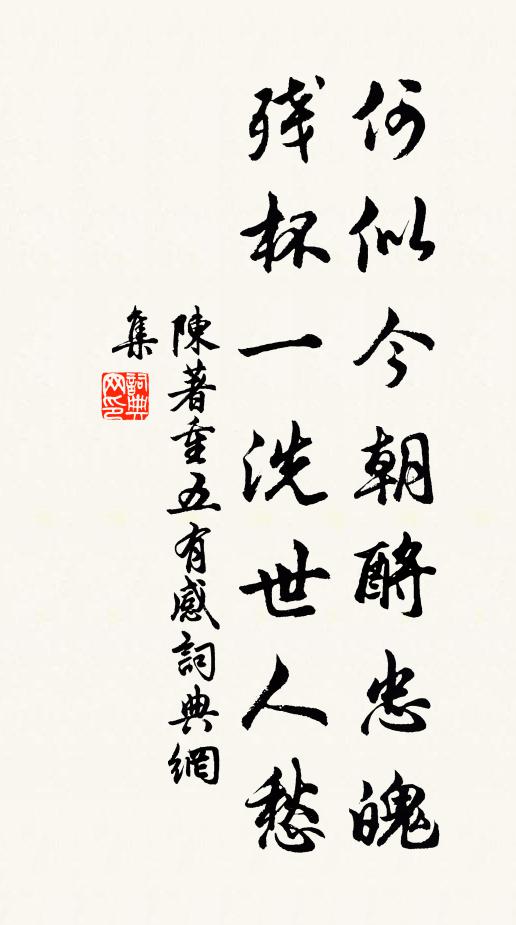 何似今朝酹忠魄
残杯一洗世人愁
陳著重五有感詞典網
集
詞典
网印